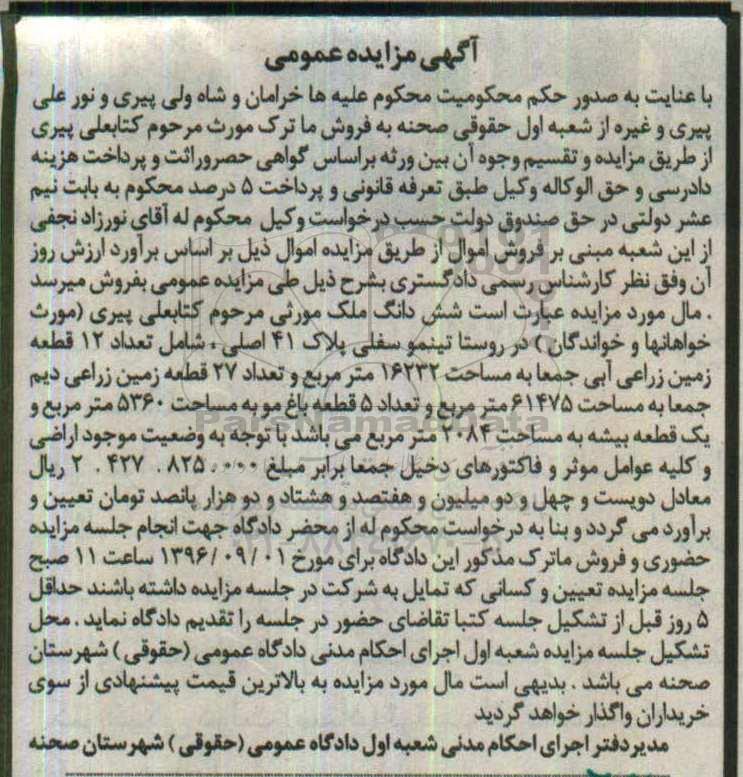 آگهی مزایده عمومی
با عنایت به صدور حکم محکومیت محکوم علیه ها خرامان و شاه ولی پیری و نور علی
پیری و غیره از شعبه اول حقوقی صحنه به فروش ما ترک مورث مرحوم کتابعلی پیری
از طریق مزایده و تقسیم وجوه آن بین ورثه براساس گواهی حصروراثت و پرداخت هزینه
دادرسی و حق الوکاله وکیل طبق تعرفه قانونی و پرداخت ۵ درصد محکوم به بابت نیم
عشر دولتی در حق صندوق دولت حسب درخواست وکیل محکوم له آقای نورزاد نجفی
از این شعبه مبنی بر فروش اموال از طریق مزایده اموال ذیل بر اساس برآورد ارزش روز
آن وفق نظر کارشناس رسمی دادگستری بشرح ذیل طی مزایده عمومی بفروش میرسد
. مال مورد مزایده عبارت است شش دانگ ملک مورثی مرحوم کتابعلی پیری (مورث
خواهانها و خواندگان ) در روستا تینمو سفلی پلاک ۴۱ اصلی ، شامل تعداد ۱۲ قطعه
زمین زراعی آبی جمعا به مساحت ۱۶۲۳۲ متر مربع و تعداد ۲۷ قطعه زمین زراعی دیم
جمعا به مساحت ۶۱۴۷۵ متر مربع و تعداد ۵ قطعه باغ مو به مساحت ۵۳۶۰ متر مربع و
یک قطعه بیشه به مساحت ۲۰۸۴ متر مربع می باشد با توجه به وضعیت موجود اراضی
و کلیه عوامل موثر و فاکتورهای دخیل جمعا برابر مبلغ ۲ . ۴۲۷ . ۸۲۵ . ۰۰۰ ریال
معادل دویست و چهل و دو میلیون و هفتصد و هشتاد و دو هزار پانصد تومان تعیین و
برآورد می گردد و بنا به درخواست محکوم له از محضر دادگاه جهت انجام جلسه مزایده
حضوری و فروش ماترک مذکور این دادگاه برای مورخ ۱۳۹۶/۰۹/۰۱ ساعت ۱۱ صبح
جلسه مزایده تعیین و کسانی که تمایل به شرکت در جلسه مزایده داشته باشند حداقل
۵ روز قبل از تشکیل جلسه کتبا تقاضای حضور در جلسه را تقدیم دادگاه نماید . محل
تشکیل جلسه مزایده شعبه اول اجرای احکام مدنی دادگاه عمومی (حقوقی ) شهرستان
صحنه می باشد . بدیهی است مال مورد مزایده به بالاترین قیمت پیشنهادی از سوی
خریداران واگذار خواهد گردید
مدیردفتر اجرای احکام مدنی شعبه اول دادگاه عمومی (حقوقی ) شهرستان صحنه
ParsNamadData